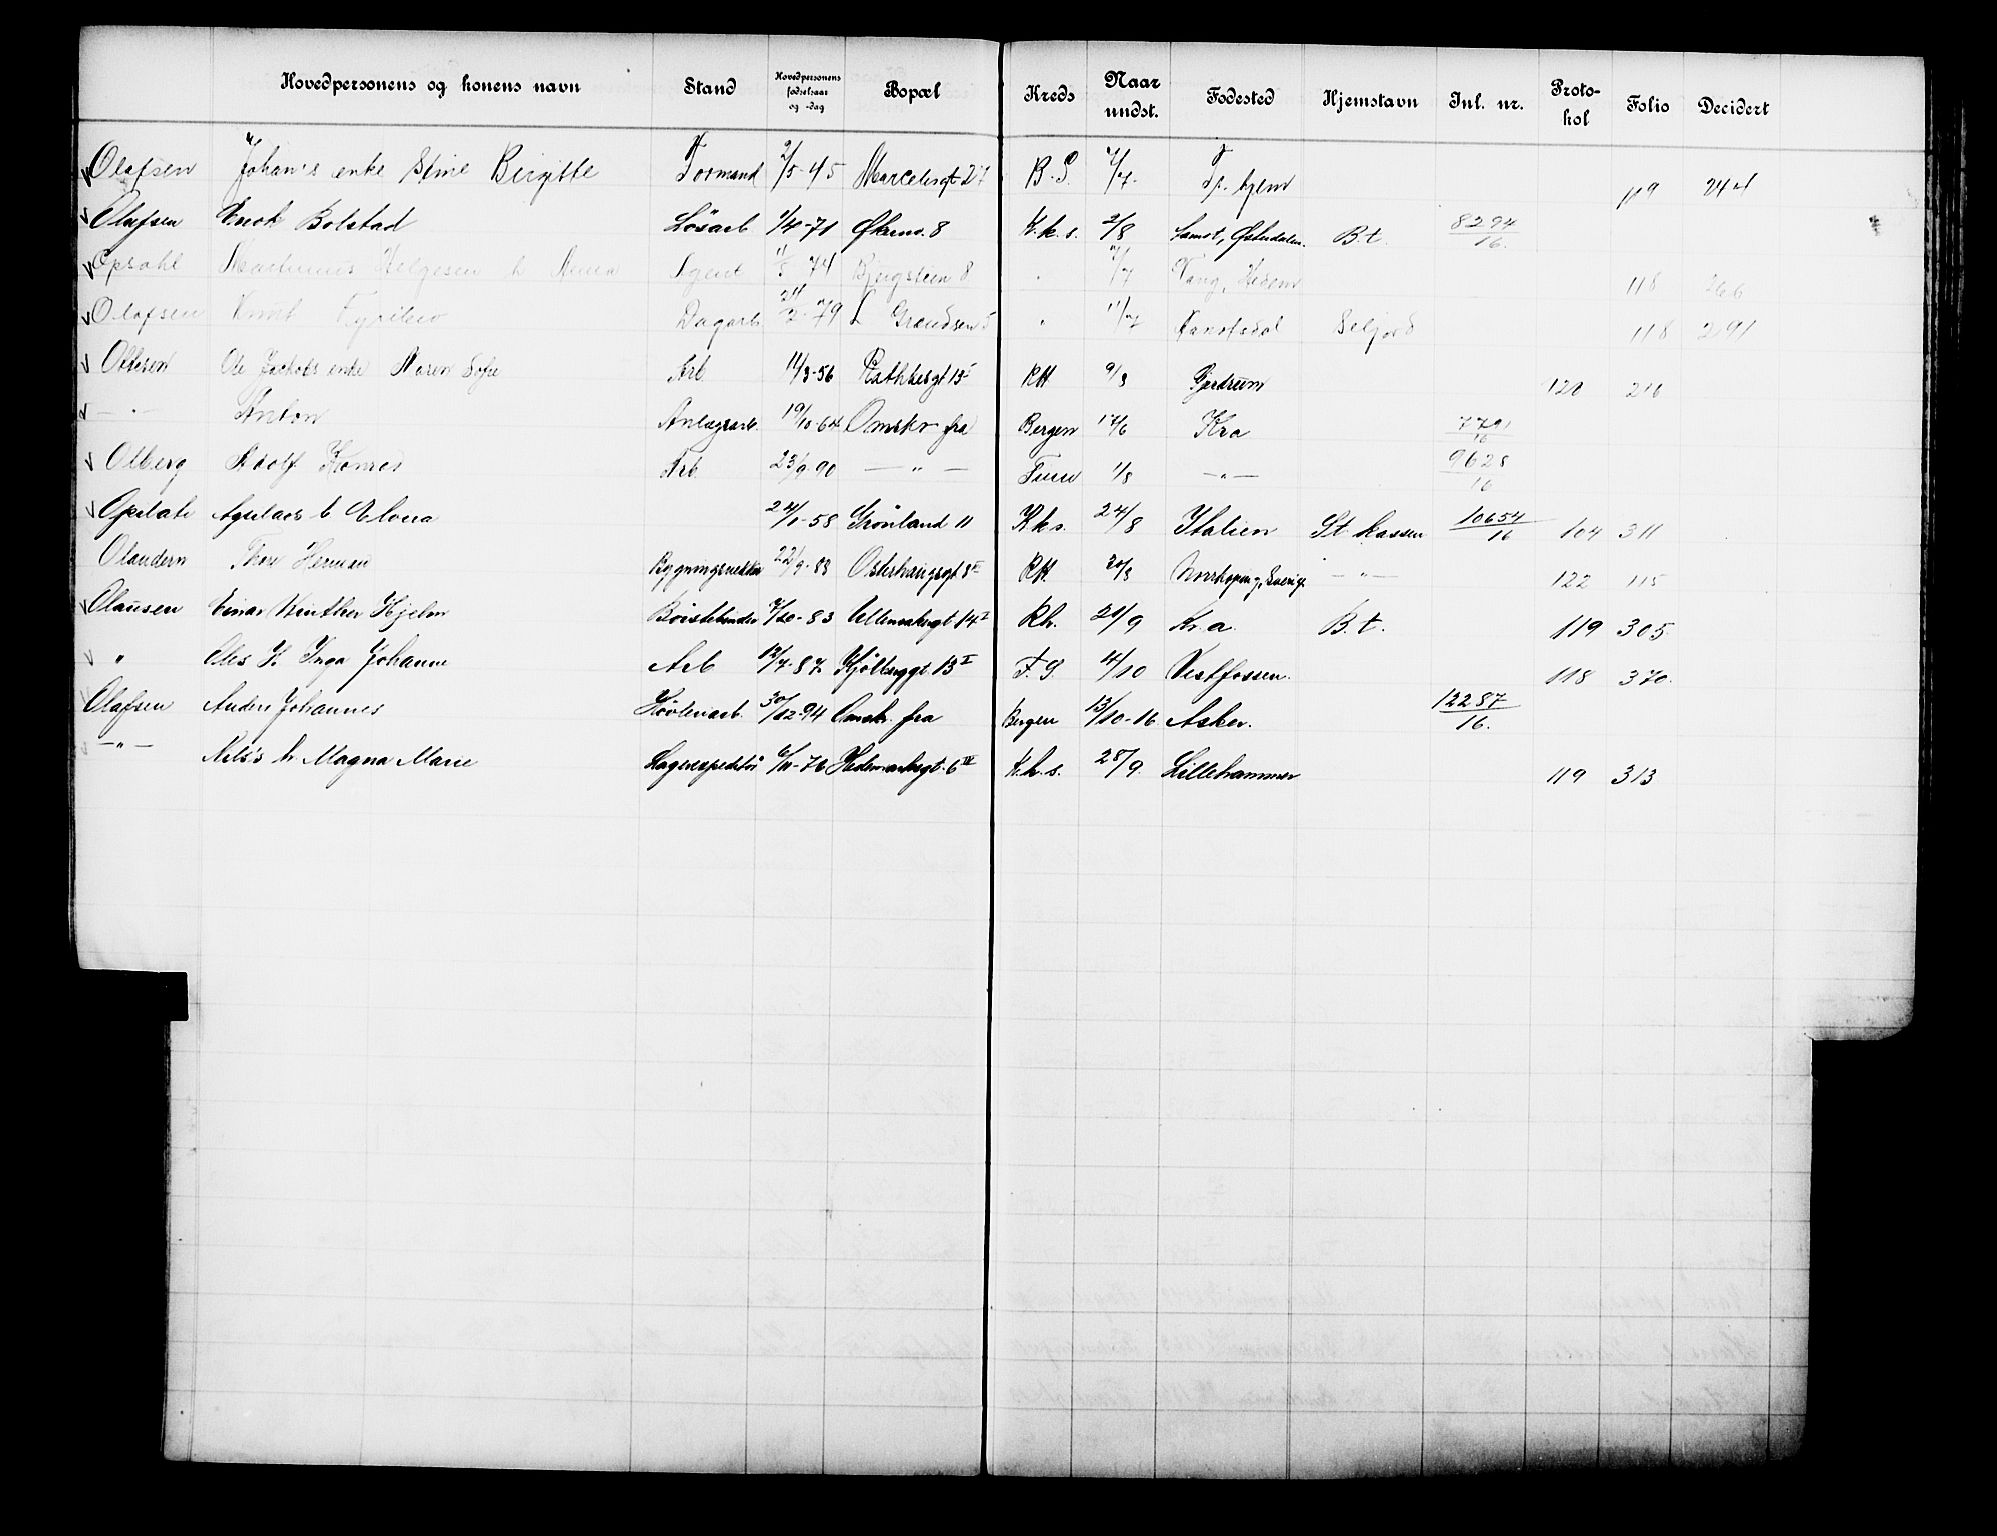 Hovedpersonens og konens navn Stand Hovedpersonens fødselsaar og -dag Bopæl Kreds Naar undst. Fødested Hjemstavn Inl. nr. Proto-kol Folio Decidert
Olafsen Johan's enke Stine Birgitte Formand 2/5-45 Marcelesgt 27 B.S. 4/7 119 244
Olafsen Enok Bolstad Løsarb 1/4-71 Økernv. 8 K.k.s. 2/8 Østerdalen. B.t. 8294/16.
Opsahl Martinus Helgesen h Anna Agent 74 Bjergsteen 8 " /7 Vang, Hedem 118 266
Olafsen Knut Dagarb. 79 L Grændsen 5 " 11/7 Seljord 118 291
Ottesen Ole Jachobs enke Maren Sofie Arb. 11/3-56 Rathkesgt 15 RH 9/8 Gjerdrum 120 216
— " — Anton Anlægsarb. 19/10-64 Omskr fra Bergen 17/6 Kra 779/16
Olberg Adolf Konrad Arb. 23/9-90 — " — 1/8 — " — 9628/16
Agilaos h Elvira 24/1-58 Grønland 11 K.k.s. 24/8 Italien St. kassen 10654/16 104 311
Olandern Thor Herman 22/9-83 Osterhausgt 8 RH. 20/8 Sverige — " — 122 115
Olausen Einar Winther Hjelm Børstebinder 7/10-83 Ullensakergt 14 I Rh. 21/9 Kr.a. B.t. 119 305.
" Oles H. Inga Johanne Arb 12/4-87 Kjølberggt. 13 II F.S. 4/10 Vestfossen. 118 370.
Olafsen Anders Johannes Høvleriarb. 30/12-94 Omskr. fra Bergen 13/10-16 Asker. 12287/16.
— " — Nils's h. Magna Marie Lagerexpeditør 6/11-76 Hedemarksgt. 6 IV K.k.s. 28/9. Lillehammer 119 313